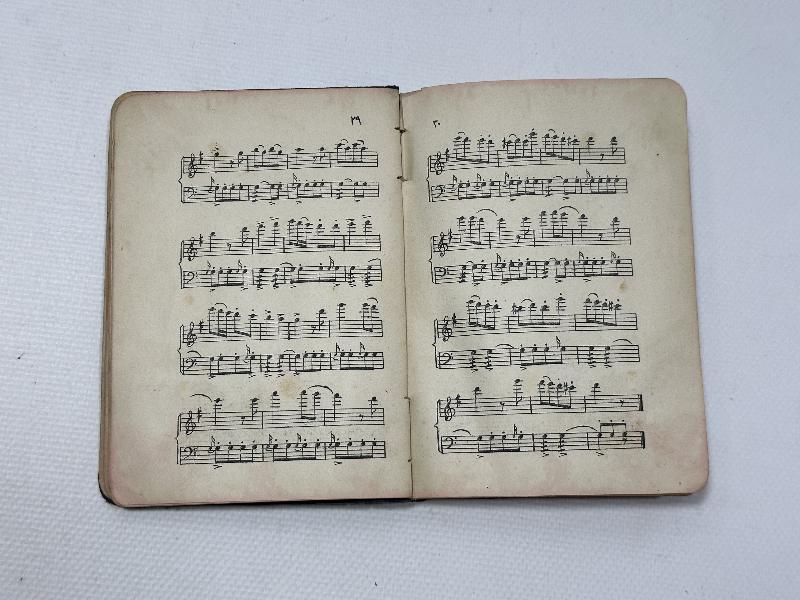 ٢٩
٣٠